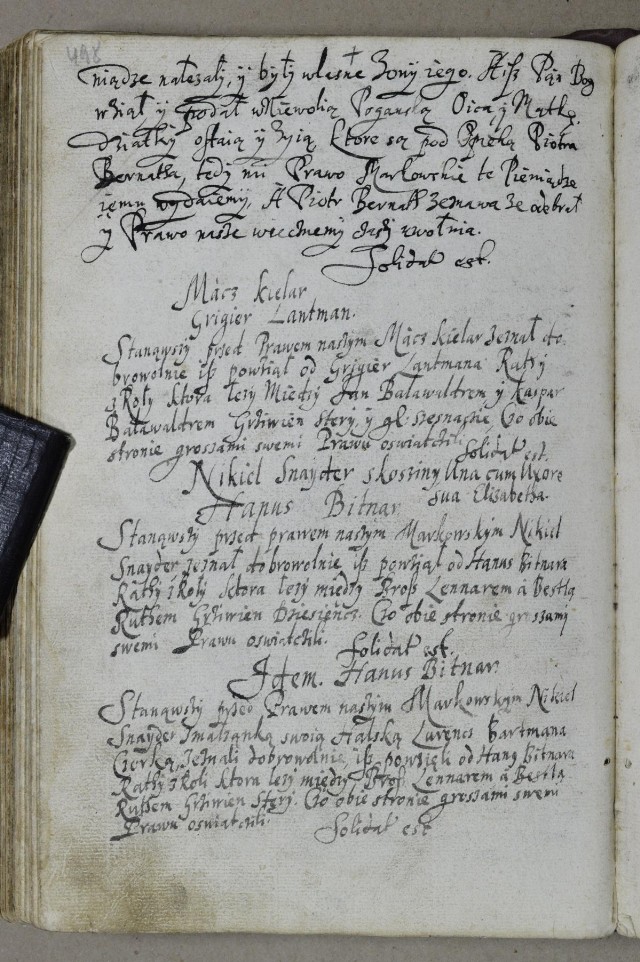 498
niądze należały, y były własne Żony iego. A isz Pan Bog
wział y podał w Niewolią Poganską Oica y Matkę.
Dziatky ostaią y żyią, ktore są pod Opieką Piotra
Bernatha, tedy mi Prawo Markowskie te Pieniądze
iemu wydaiemy, A Piotr Bernath zeznawa że odebrał
y Prawo nasze wiecznemi czasy zwolnia.
Solidat est.
Mácz kielar
Grigier Lantman.
Stanąwszy przed Prawem naszym Mácz kielar zeznał do-
browolnie isz powziął od Grigier Lantmana Rathy
z Roly ktora leży Miedzy Jan Baławaldrem y kaspar
Baławaldrem Grziwien sterÿ, y gł: szesnascie, Co obie
stronie groszami swemi Prawu oswiatchili. Solidat est.
Nikiel Snayder skosziny Una cum Uxore
Hanus Bitnar sua Elizabetha.
Stanąwszy przed prawem naszym Markowskym Nikiel
Snayder zeznał dobrowolnie, isz powziął od Hanus Bitnara
Rathy z Roly ktora leży między Bross Lennarem á Bestlą
Ruthem Grziwien Dziesięncz. Co obie stronie groszamy
swemi Prawu oswiatchili. Solidat est.
Idem. Hanus Bitnar
Stanąwszy przed Prawem naszym Markowskym Nikiel
Snayder Zmałżąnką swoią Halską Lurencs Bartmana
Czerką, zeznali dobrowolnie, isz powzięli od Hanus Bitnara
Rathy z Roli ktora leży między Bross Lennarem á Bestlą
Ruthem Grziwien Stery. Co obie stronie groszami swemi
Prawu oswiatchili. Solidat est